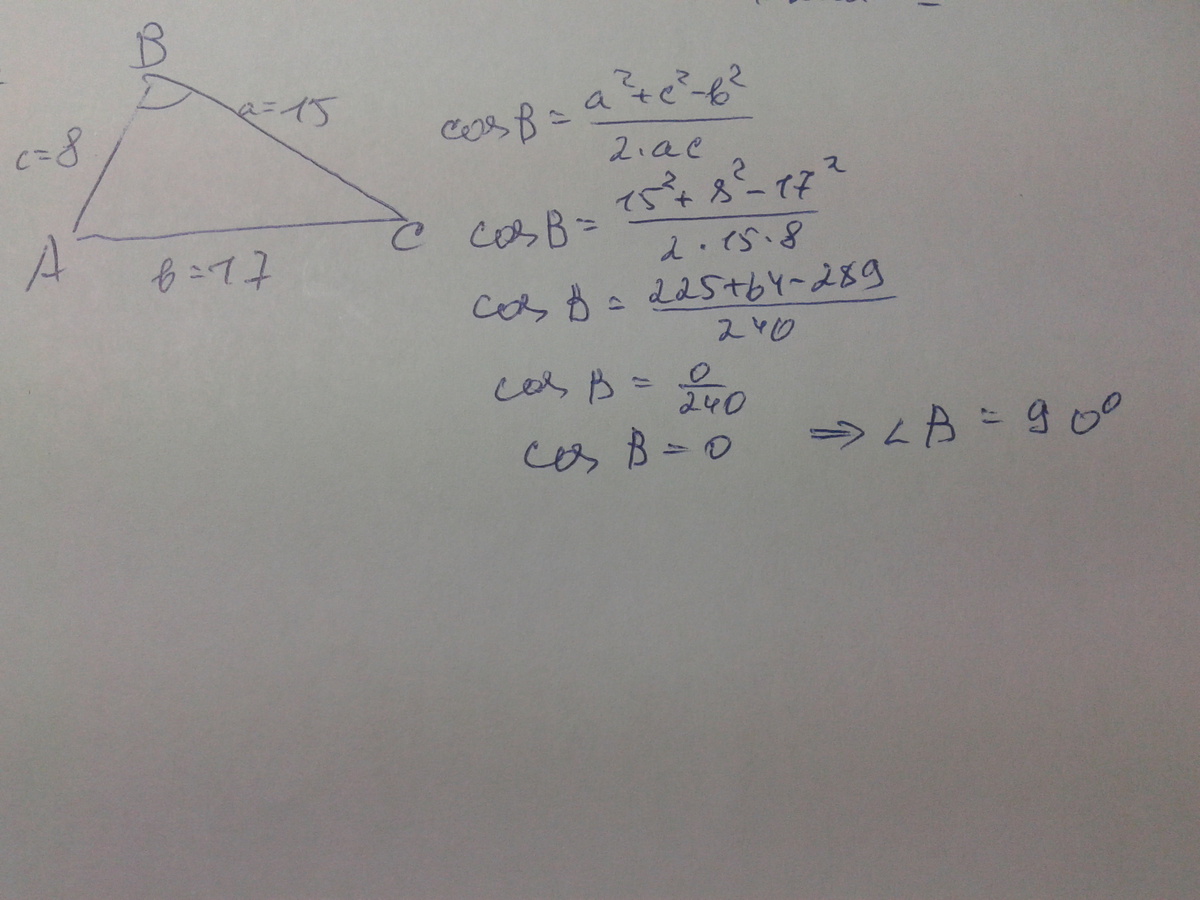 B
c=8
a=15
A
C
b=17
cos B = (a²+c²-b²)/(2·ac)
cos B = (15²+8²-17²)/(2·15·8)
cos B = (225+64-289)/240
cos B = 0/240
cos B = 0 ⇒ ∠B = 90⁰